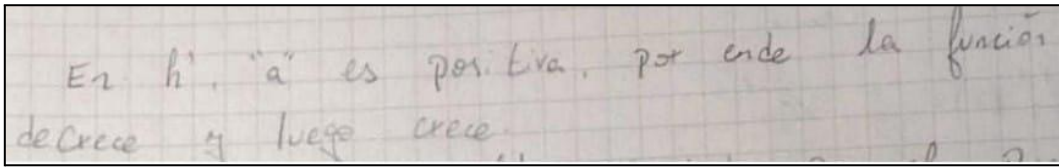 En h', "a" es positiva, por ende la función
decrece y luego crece